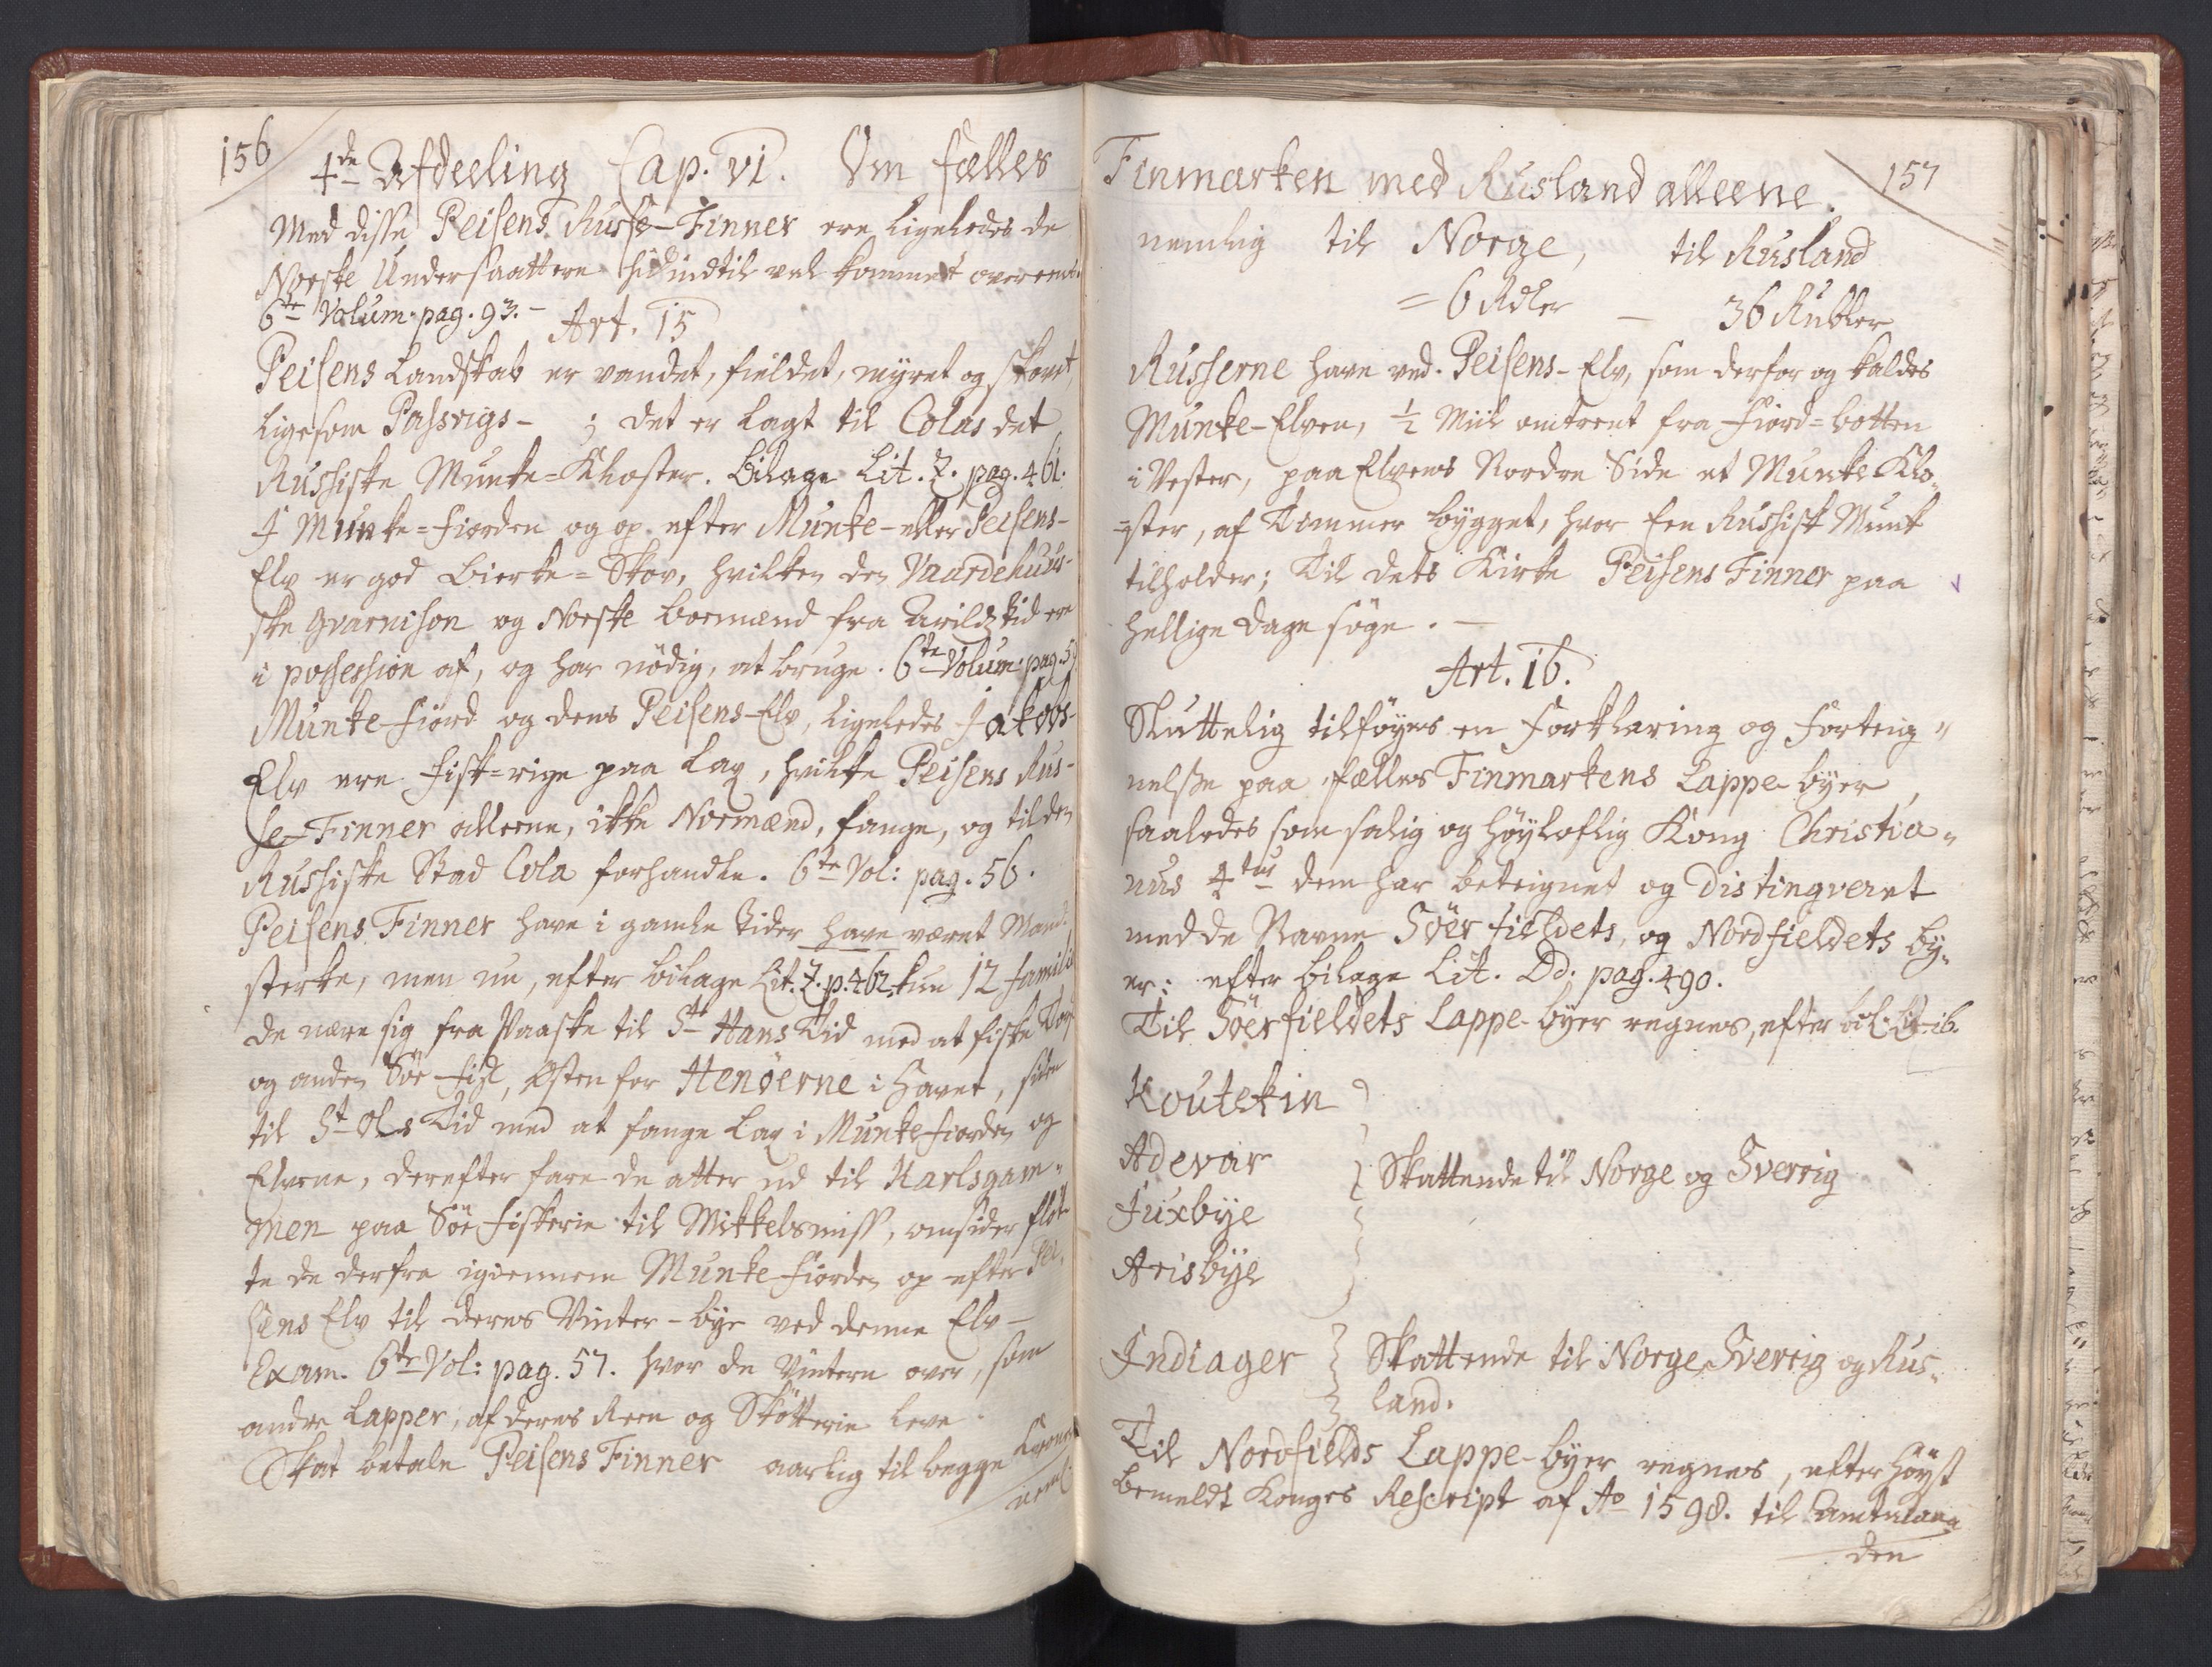 156
4de Afdeeling Cap. VI. Om fælles
Med disse Peisens Russe-Finner ere ligeledes de
Norske Undersaattere hidindtil vel kommet overeens
6te Volum. pag. 93. –
Art. 15
Peisens Landskab er vandet, fieldet, myret og skovet,
ligesom Passvigs- ; det er lagt til Colas det
Russiske Munke-Kloster. Bilage Lit. Z. pag. 461.
I Munke-Fiorden og op efter Munke- eller Peisens-
Elv er god Bierke-Skov, hvilken den Vaardehuus-
ske Gvarnison og Norske Boemænd fra Arilds tid ere
i possession af, og har nödig, at bruge. 6te Volum: pag. 57
Munke-Fiord og dens Peisens-Elv, ligeledes Jakobs-
Elv ere fisk-rige paa Lax, hvilke Peisens Rus-
se-Finner alleene, ikke Normænd, fange, og til den
Russiske Stad Cola forhandle. 6te Vol: pag. 56.
Peisens Finner have i gamle tider have været Mand-
sterke, men nu, efter Bilage Lit. Z. p. 462, kun 12 famili
de nære sig fra Paaske til St Hans Tid med at fiske
og anden Söe-fisk, Østen for Henöerne i Havet, siden
til St Ols Tid med at fange Lax i Munkefiorden og
Elvene, derefter fare de atter ud til Karlsgam-
men paa Söe fiskerie til Mikkelsmiss, omsider flöt-
te de derfra igiennem Munke-Fiorden op efter Pei-
sens Elv til deres Vinter-bye ved denne Elv –
Exam. 6te Vol: pag. 57. hvor de Vintern over, som
andre Lapper, af deres Reen og Skötterie leve.
Skat betale Peisens Finner aarlig til begge Kroner
neml.
157
Finmarken med Rusland alleene.
nemlig til Norge, til Rusland
= 6 Rdler – 36 Rubler
Russerne have ved Peisens-Elv, som derfor og kaldes
Munke-Elven, ½ Miil omtrent fra Fiord-botten
i Vester, paa Elvens Nordre Side et Munke Klo-
=ster, af Tømmer bygget, hvor Een Russisk Munk
tilholder; Til dets Kirke Peisens Finner paa
hellige Dage söge. –
Art. 16.
Sluttelig tilföyes en Forklaring og Forteig-
nelse paa fælles Finmarkens Lappe-byer,
saaledes som salig og höyloflig Kong Christia-
nus 4tus dem har beteignet og Distingveret
med de Navne Söerfieldets, og Nordfieldets by-
er: efter Bilage Lit. Dd. pag. 490.
Til Söerfieldets Lappe-byer regnes, efter bil: Lit: ib.
Koutekin
Adevar
Skattende til Norge og Sverrig
Juxbye
Arisbye
Indiager
Skattende til Norge, Sverrig og Rus-
land.
Til Nordfields Lappe-byer regnes, efter höyst
bemeldt Konges Rescript af Ao 1598. til Amtman-
den